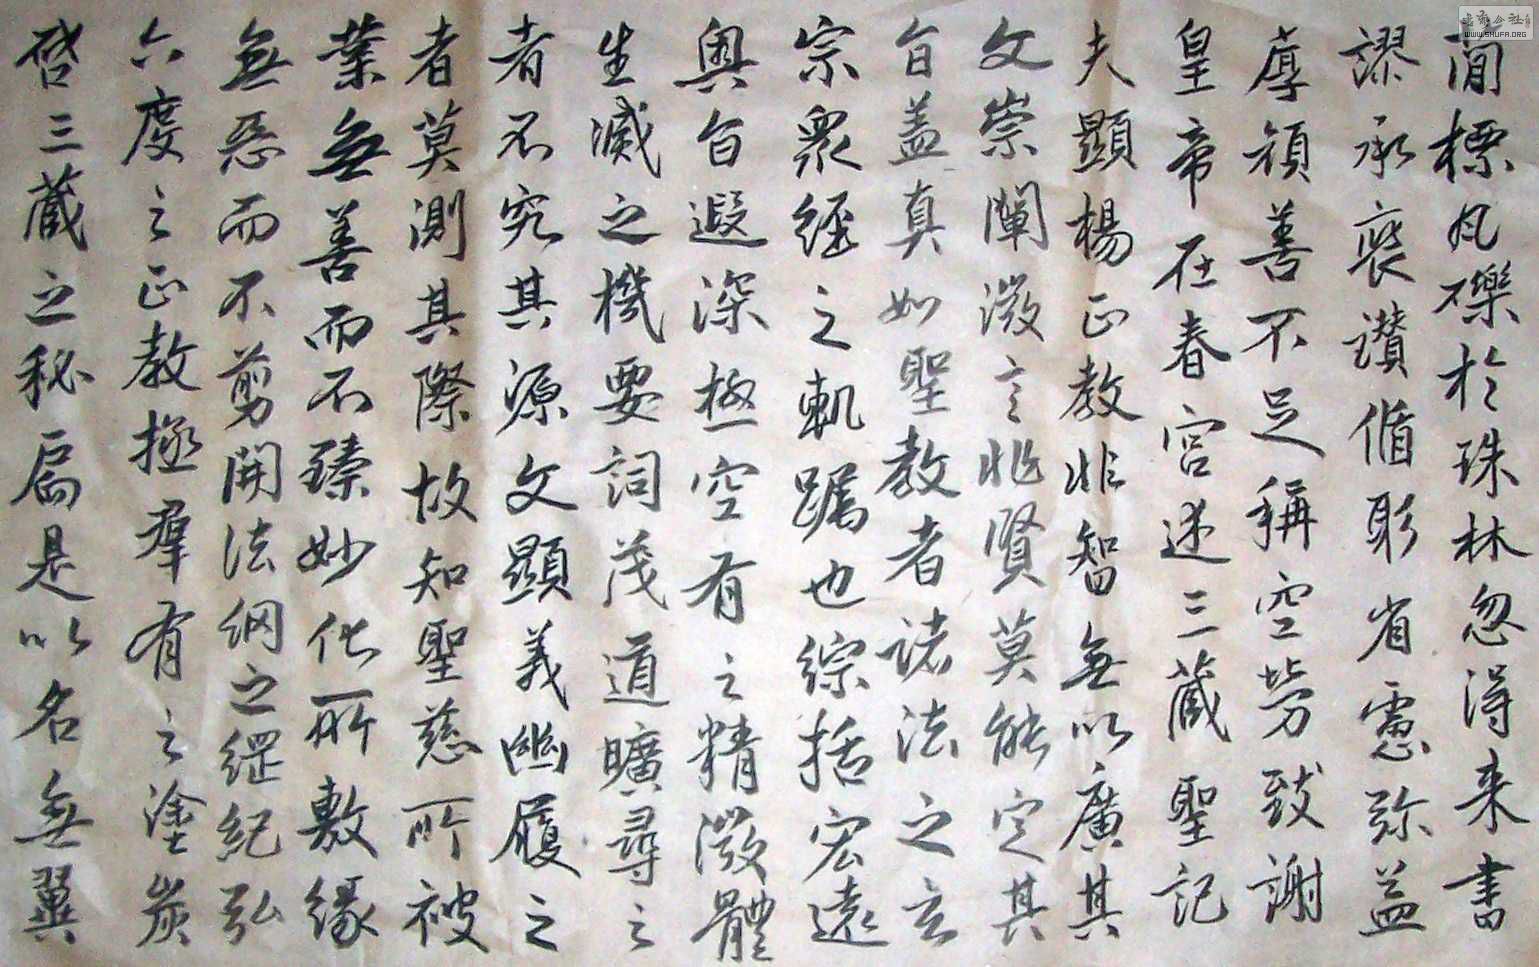 簡標瓦礫於珠林忽得来書
謬承褒讚循躬省慮弥益
厚顔善不足稱空勞致謝
皇帝在春宮述三藏聖記
夫顯揚正教非智無以廣其
文崇闡微言非賢莫能定其
旨盖真如聖教者諸法之玄
宗衆經之軌躅也綜括宏遠
奧旨遐深極空有之精微體
生滅之機要詞茂道曠尋之
者不究其源文顯義幽履之
者莫測其際故知聖慈所被
業無善而不臻妙化所敷緣
無惡而不剪開法網之綱紀弘
六度之正教拯羣有之塗炭
啓三藏之秘扃是以名無翼
书法公社
WWW.SHUFA.ORG